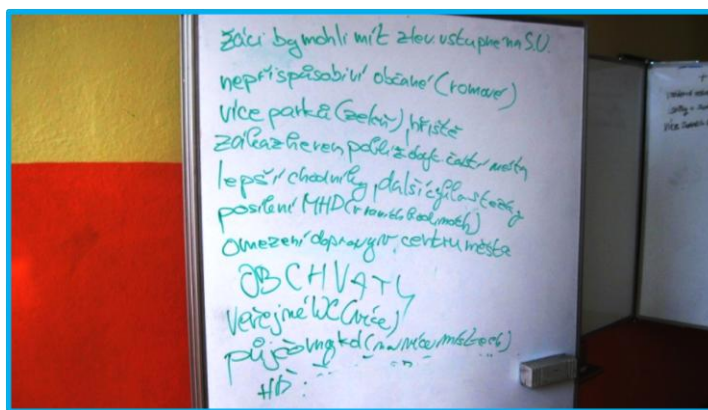 žáci by mohli mít zlev. vstupné na S.U.
nepřispůsobiví občané (romové)
více parků (zeleň), hřiště
zákaz heren poblíž části města
lepší chodníky, další cyklostezky
posílení MHD (v hodinách)
omezení dopravy v centru města
OBCHVATY
veřejné WC (více)
půjčovny kol (na více místech)
HD: